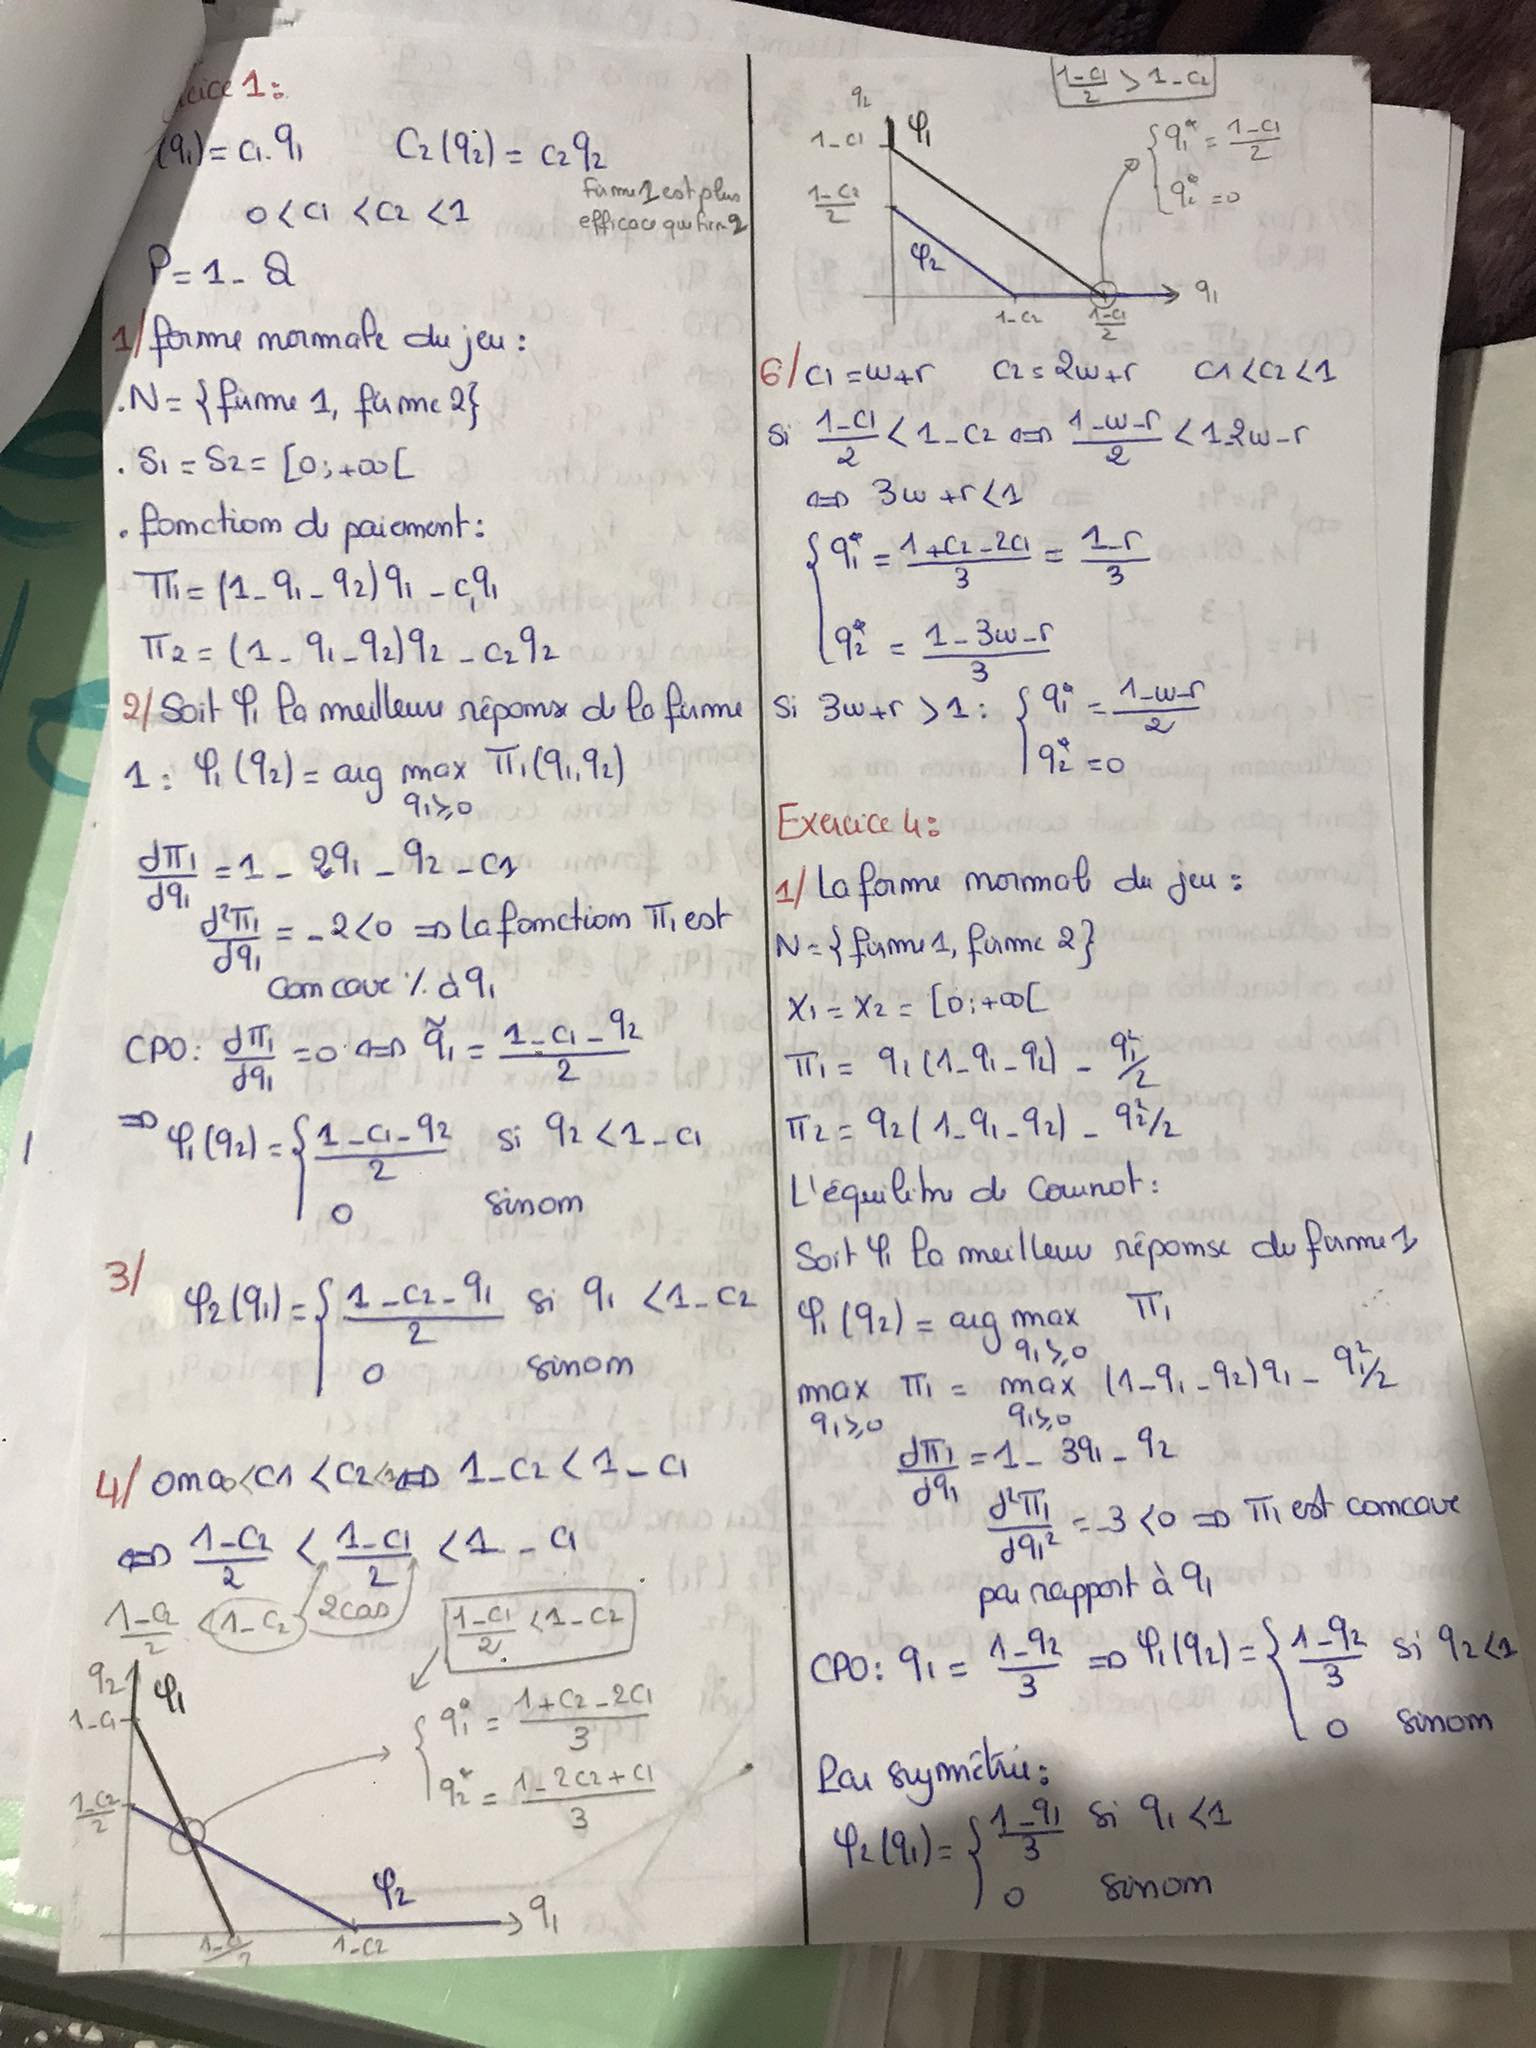 cice 1:
(q1) = c1.q1   C2(q2) = c2q2
0 < c1 < c2 < 1
firme 1 est plus
efficace que firm 2
P = 1 - Q
1/ forme normale du jeu :
. N = {firme 1, firme 2}
. S1 = S2 = [0; +∞[
. fonction de paiement :
π1 = (1 - q1 - q2)q1 - c1q1
π2 = (1 - q1 - q2)q2 - c2q2
2/ Soit φ1 la meilleure réponse de la firme
1 : φ1(q2) = arg max π1(q1,q2)
q1≥0
dπ1/dq1 = 1 - 2q1 - q2 - c1
d²π1/dq1 = -2 < 0 ⇒ la fonction π1 est
concave % à q1
CPO : dπ1/dq1 = 0 ⇔ q̃1 = (1 - c1 - q2)/2
⇒ φ1(q2) = { (1 - c1 - q2)/2 si q2 < 1 - c1
0 sinon
3/
φ2(q1) = { (1 - c2 - q1)/2 si q1 < 1 - c2
0 sinon
4/ On a 0 < c1 < c2 < 1 ⇔ 1 - c2 < 1 - c1
⇔ (1 - c2)/2 < (1 - c1)/2 < 1 - c1
(1 - c2)/2 < 1 - c2   2 cas   (1 - c1)/2 < 1 - c2
q2   φ1
1 - c1
{ q1* = (1 + c2 - 2c1)/3
q2* = (1 - 2c2 + c1)/3
(1 - c2)/2
φ2   q1
(1 - c1)/2   1 - c2
(1 - c1)/2 > 1 - c2
q2   φ1
1 - c1
{ q1* = (1 - c1)/2
q2* = 0
(1 - c2)/2
φ2   q1
1 - c2   (1 - c1)/2
6/ c1 = w+r   c2 = 2w+r   c1 < c2 < 1
Si (1 - c1)/2 < 1 - c2 ⇔ (1 - w - r)/2 < 1 - 2w - r
⇔ 3w + r < 1
{ q1* = (1 + c2 - 2c1)/3 = (1 - r)/3
q2* = (1 - 3w - r)/3
Si 3w + r > 1 : { q1* = (1 - w - r)/2
q2* = 0
Exercice 4 :
1/ La forme normal du jeu :
N = {firme 1, firme 2}
X1 = X2 = [0; +∞[
π1 = q1(1 - q1 - q2) - q1²/2
π2 = q2(1 - q1 - q2) - q2²/2
L'équilibre de Cournot :
Soit φ1 la meilleur réponse du firme 1
φ1(q2) = arg max π1
q1≥0
max π1 = max (1 - q1 - q2)q1 - q1²/2
q1≥0   q1≥0
dπ1/dq1 = 1 - 3q1 - q2
d²π1/dq1² = -3 < 0 ⇒ π1 est concave
par rapport à q1
CPO : q1 = (1 - q2)/3 ⇒ φ1(q2) = { (1 - q2)/3 si q2 < 1
0 sinon
Par symétrie :
φ2(q1) = { (1 - q1)/3 si q1 < 1
0 sinon